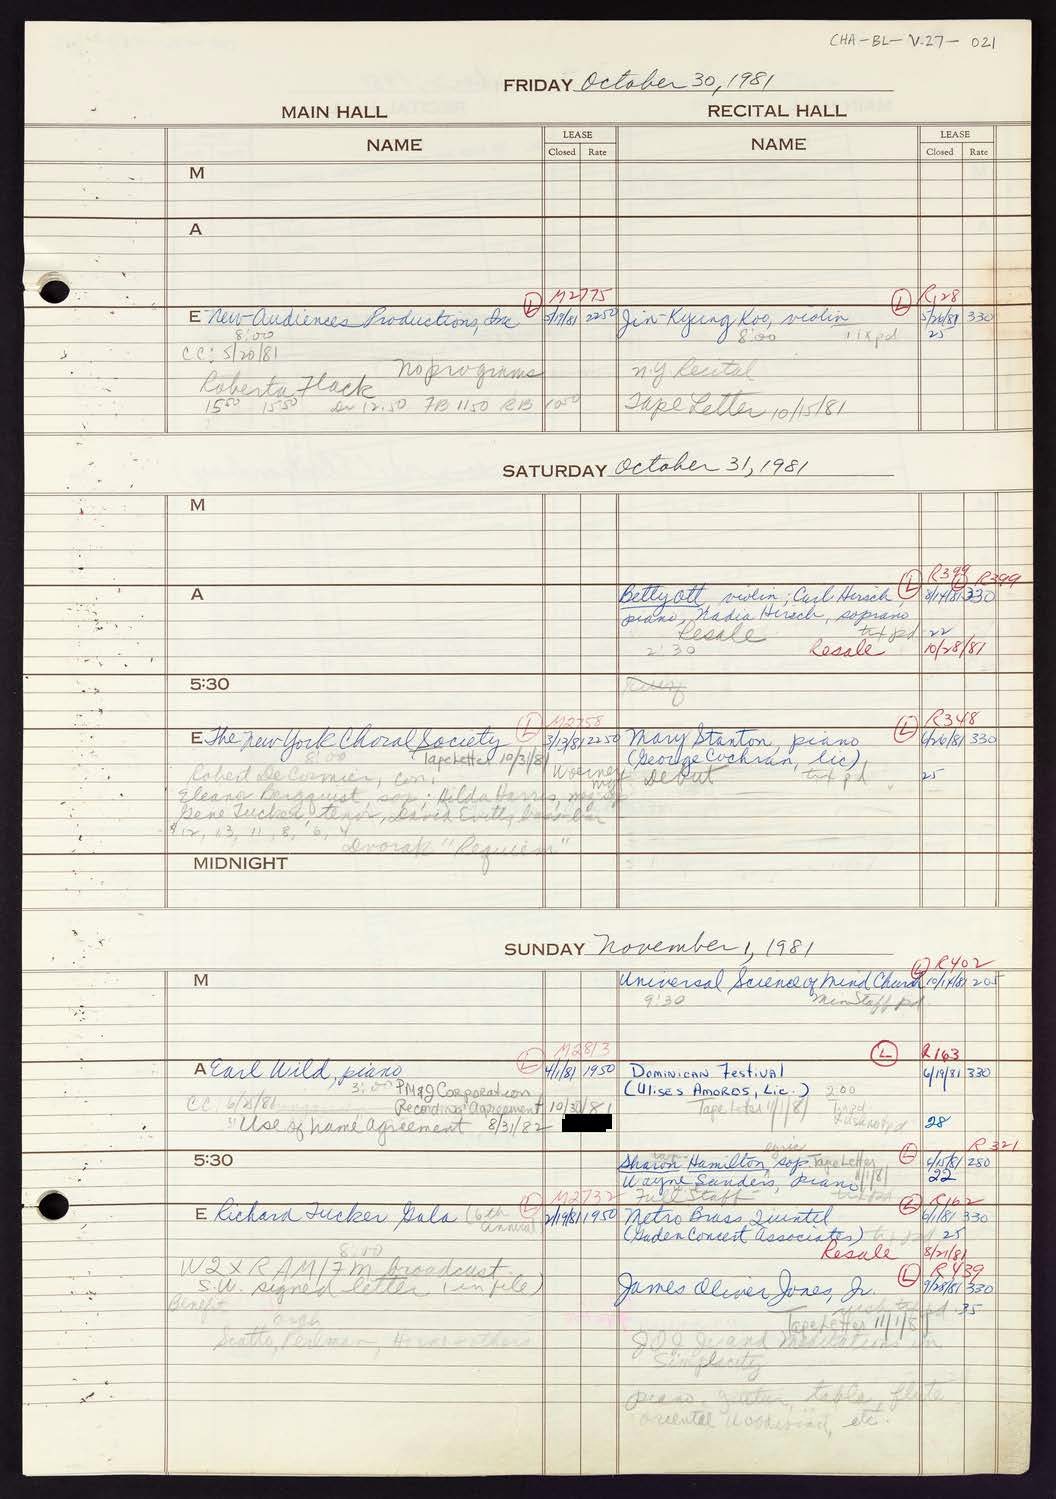 CHA-BL-V.27- 021
FRIDAY October 30, 1981
MAIN HALL
RECITAL HALL
NAME
LEASE
Closed Rate
NAME
LEASE
Closed Rate
M
A
M2775
R128
E New-Audiences Productions, Inc L 5/17/81 2250
8:00
CC: 5/20/81
No programs
Roberta Flack
15.50 15.50 Dr 12.50 FB 11.50 RB 10.50
Jin-Kyung Koo, violin L 5/26/81 330
8:00 pd 25
N.Y Recital
Tape Letter 10/15/81
SATURDAY October 31, 1981
M
R399 L R399
A
Betty Ott violin; Carl Hirsch, L 8/14/81 330
piano, Nadia Hirsch, soprano
Resale txt pd 22
2:30 Resale 10/28/81
5:30
M2758
R348
E The New York Choral Society L 3/13/81 2250
8:00 Tape Letter 10/31/81
Robert DeCormier, con;
Eleanor Bergquist, sop; Hilda Harris,
Gene Tucker, tenor, David Evitts,
$12, 13, 11, 8, 6, 4
Dvorak "Requiem"
Mary Stanton, piano L 6/26/81 330
(George Cochran, lic)
Debut txt pd 25
MIDNIGHT
SUNDAY November 1, 1981
R402
M
Universal Science of Mind Church L 10/14/81 205
9:30 Min Staff pd
M2813
R163
A Earl Wild, piano L 4/1/81 1950
3:00 PM&J Corporation
CC: 6/8/81 Recording Agreement 10/30/81
Use of name agreement 8/31/82
DOMINICAN FESTIVAL L 6/19/81 330
(ULISES AMOROS, LIC.) 2:00
Tape Letter 11/1/81
28
5:30
R 321
Sharon Hamilton, sop L 6/15/81 250
Tape Letter 11/1/81
Wayne Sanders, piano 22
Full Staff
M2732
R162
E Richard Tucker Gala (6th annual) L 2/19/81 1950
8:00
WQXR AM/FM broadcast
S.W. signed letter (in file)
Benefit
Scotto, Perlman, Horne + others
Metro Brass Quintet L 6/1/81 330
(Raden Concert Associates) pd 25
Resale 8/21/81
R439
James Oliver Jones, Jr. L 9/28/81 330
pd 35
Tape Letter 11/1/81
JOJ Jr and Meditations in
Simplicity
piano, guitar, tabla, flute
oriental woodwind, etc.